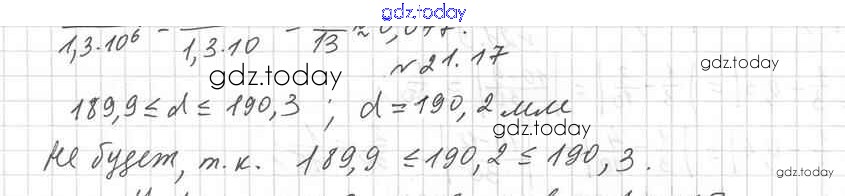 gdz.today
1,3·10⁶ - 1,3·10 - 13 ≈ 0,077.
gdz.today
№21.17
gdz.today
189,9 ≤ d ≤ 190,3 ; d = 190,2 мм
gdz.today
Не будет, т.к. 189,9 ≤ 190,2 ≤ 190,3.
gdz.today